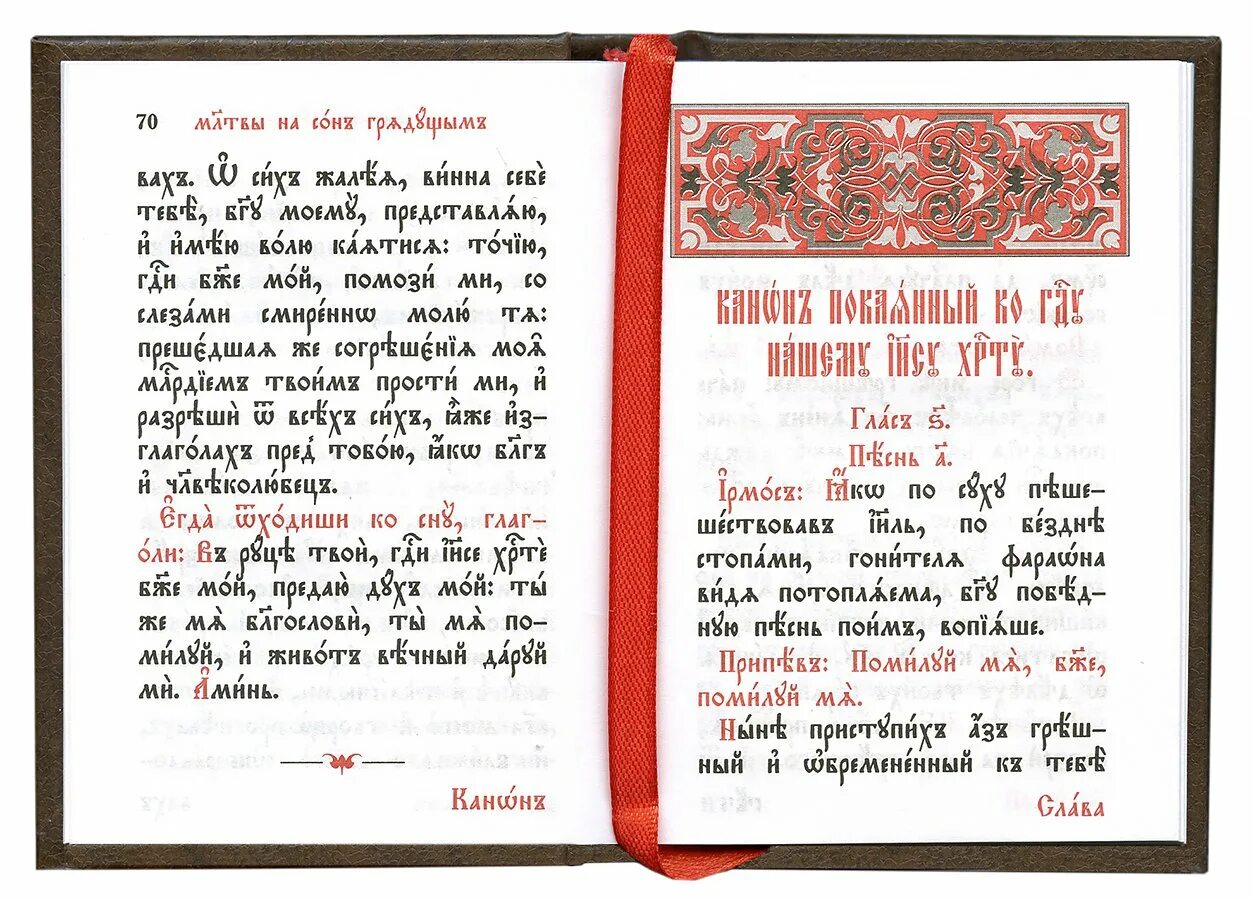 70 мл҃твы на со́нъ грѧдꙋ́щымъ
вахъ. Ѽ си́хъ жалѣ́ѧ, ви́нна себѐ
тебѣ̀, бг҃ꙋ моемꙋ̀, представлѧ́ю,
и҆ и҆мѣ́ю во́лю ка́ѧтисѧ: то́чїю,
гдⷭ҇и бж҃е мо́й, помозѝ ми, со
слеза́ми смире́ннѡ молю́ тѧ:
преше́дшаѧ же согрѣшє́нїѧ моѧ҄
млⷭ҇рдїемъ твои́мъ простѝ ми, и҆
разрѣшѝ ѿ всѣ́хъ си́хъ, ꙗ҆̀же и҆з-
глаго́лахъ пред̾ тобо́ю, ꙗ҆́кѡ бл҃гъ
и҆ чл҃вѣколю́бецъ.
Є҆гда̀ ѿхо́диши ко снꙋ̀, глаг-
о́ли: Въ рꙋ́цѣ твоѝ, гдⷭ҇и і҆и҃се хрⷭ҇тѐ
бж҃е мо́й, предаю̀ дꙋ́хъ мо́й: ты́
же мѧ̀ бл҃гословѝ, ты̀ мѧ̀ по-
ми́лꙋй, и҆ живо́тъ вѣ́чный да́рꙋй
мѝ. А҆ми́нь.
Кано́нъ
Канѡ́нъ покаѧ́нный ко гдⷭ҇ꙋ
на́шемꙋ і҆и҃сꙋ хрⷭ҇тꙋ̀.
Гла́съ ѕ҃.
Пѣ́снь а҃.
І҆рмо́съ: Ꙗ҆́кѡ по сꙋ́хꙋ пѣше-
ше́ствовавъ і҆и҃ль, по бе́зднѣ
стопа́ми, гони́телѧ фараѡ́на
ви́дѧ потоплѧ́ема, бг҃ꙋ побѣ́д-
нꙋю пѣ́снь пои́мъ, вопїѧ́ше.
Припѣ́въ: Поми́лꙋй мѧ̀, бж҃е,
поми́лꙋй мѧ̀.
Ны́нѣ пристꙋпи́хъ а҆́зъ грѣ́ш-
ный и҆ ѡ҆бремене́нный къ тебѣ̀
Сла́ва